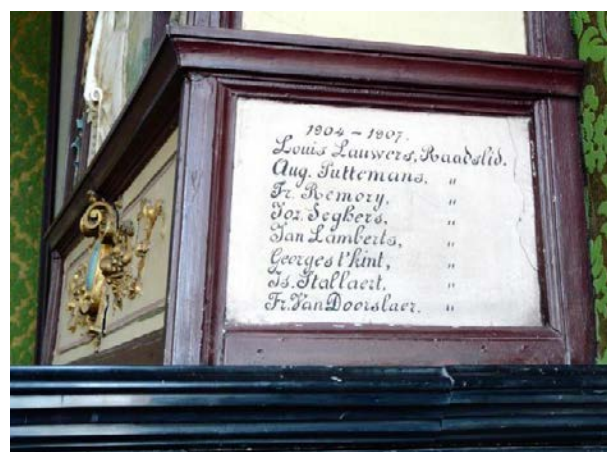 1904 – 1907.
Louis Lauwers, Raadslid.
Aug. Puttemans, "
Fr. Remory, "
Joz. Seghers, "
Jan Lamberts, "
Georges t'kint, "
Is. Stallaert, "
Fr. Van Doorslaer. "